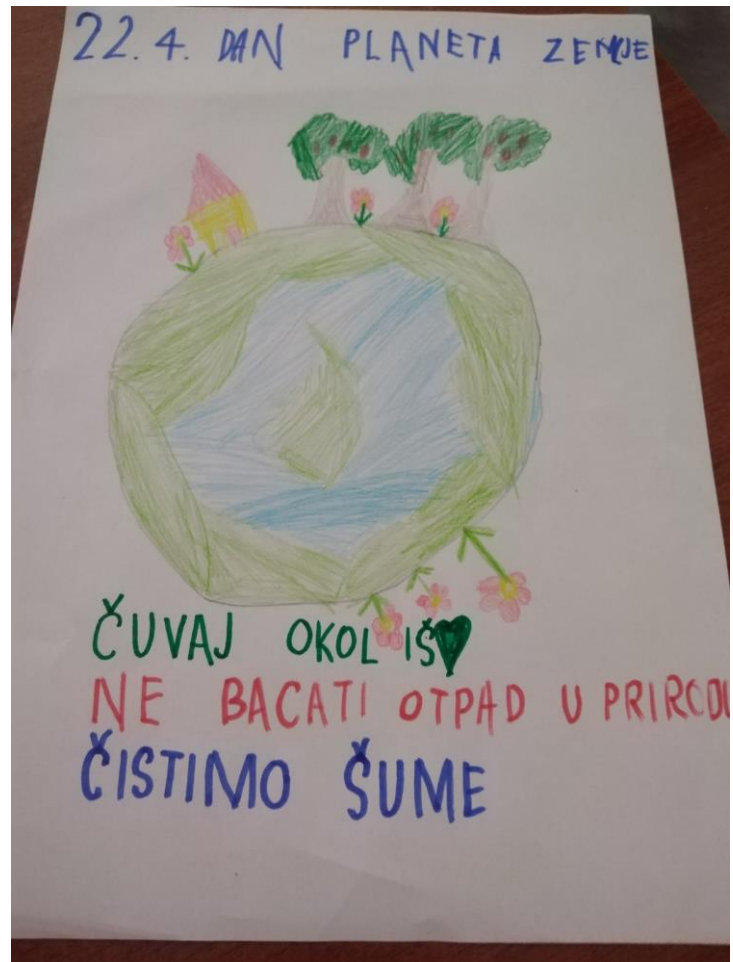 22.4. DAN PLANETA ZEMLJE
ČUVAJ OKOLIŠ♥
NE BACATI OTPAD U PRIRODU
ČISTIMO ŠUME